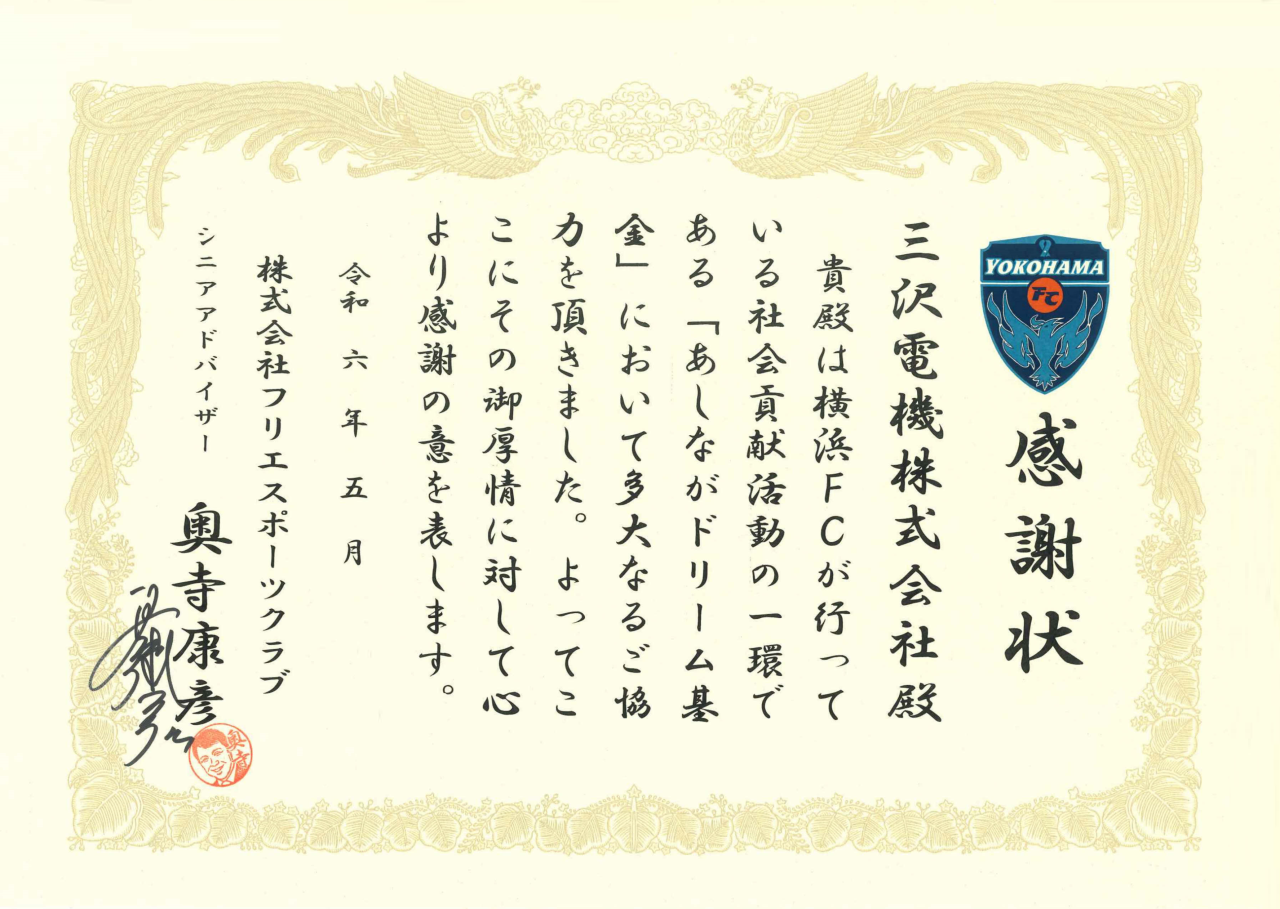 YOKOHAMA
FC
感謝状
三沢電機株式会社殿
貴殿は横浜FCが行って
いる社会貢献活動の一環で
ある「あしながドリーム基
金」において多大なるご協
力を頂きました。よってこ
こにその御厚情に対して心
より感謝の意を表します。
令和六年五月
株式会社フリエスポーツクラブ
シニアアドバイザー
奥寺康彦
奥寺